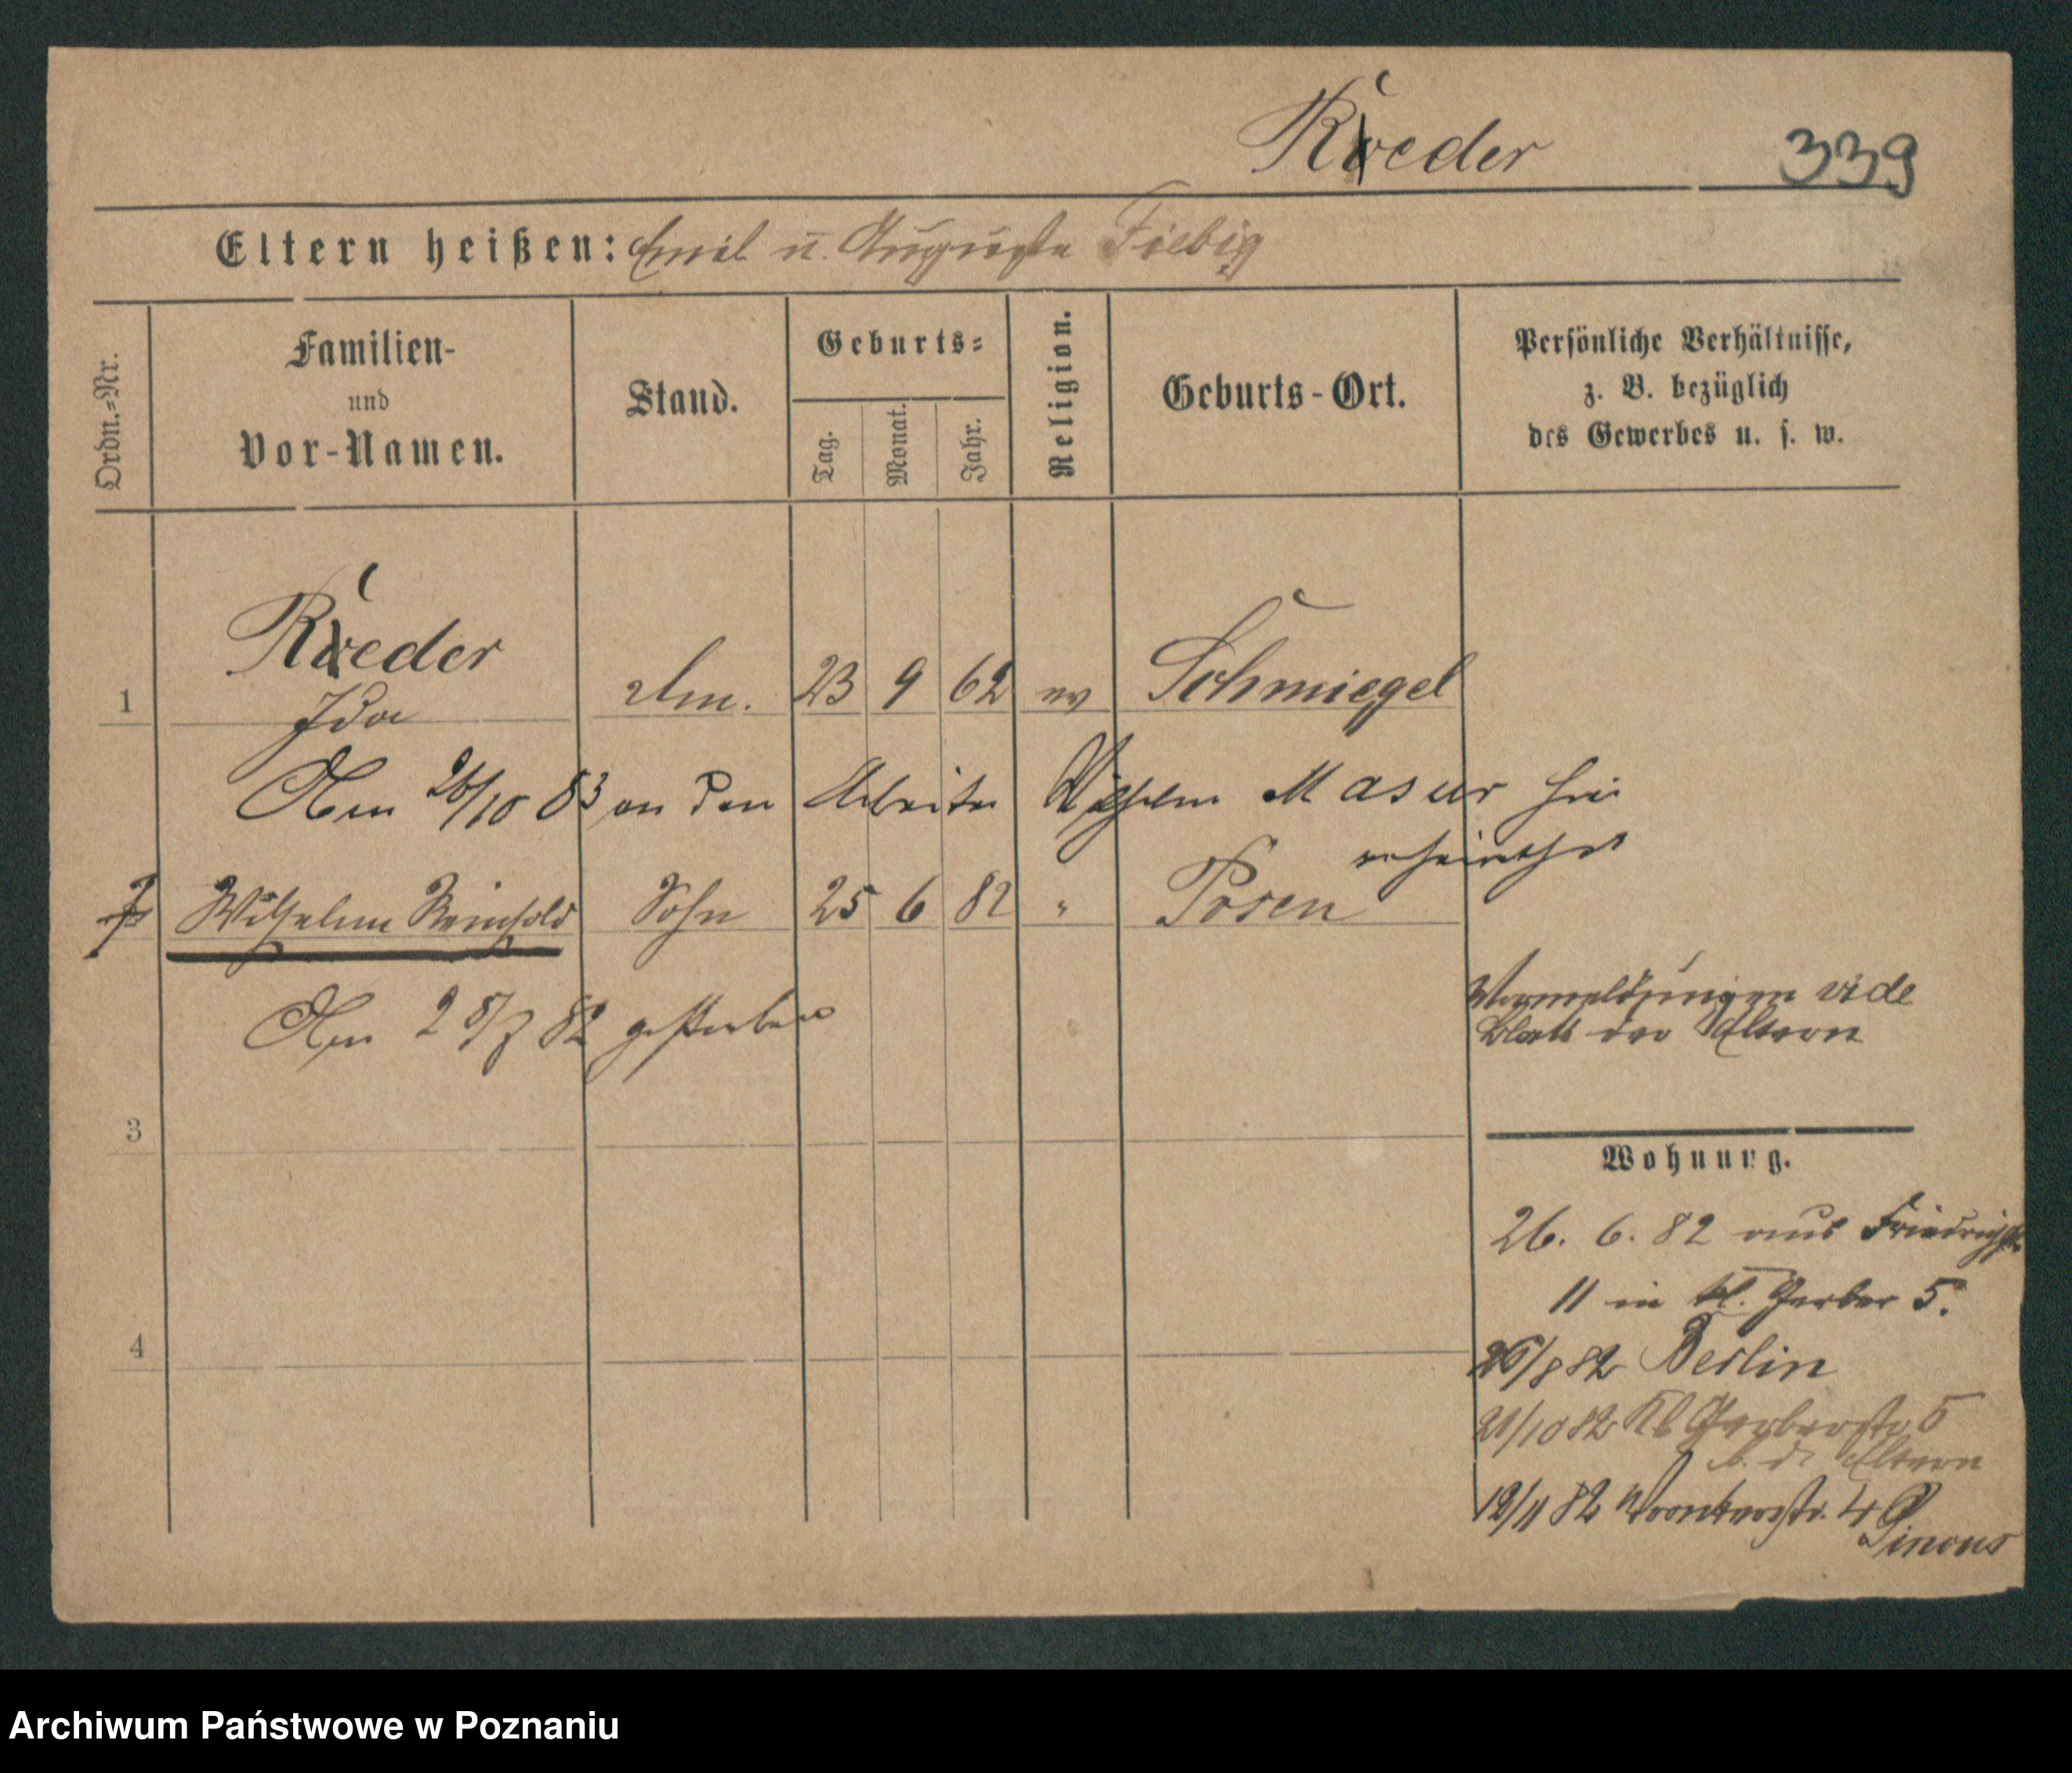 Roeder
339
Eltern heißen: Emil u. Auguste Fiebig
Ordn.=Nr.
Familien-
und
Vor-Namen.
Stand.
Geburts=
Tag.
Monat.
Jahr.
Religion.
Geburts-Ort.
Persönliche Verhältnisse,
z. B. bezüglich
des Gewerbes u. s. w.
Roeder
1 Ida 23 9 62 ev Schmiegel
Am 26/10 83 an den Arbeiter Wilhelm Masur hier
verheirathet
Wilhelm Reinhold Sohn 25 6 82 " Posen
Am 28/7 82 gestorben
Vormeldungen vide
Blatt der Eltern
3
Wohnung.
26. 6. 82 aus Friedrichstr.
11 in kl. Gerber 5.
4
26/8 82 Berlin
21/10 82 Kl Gerberstr 5
b. d. Eltern
12/11 82 Wronkerstr. 4
Archiwum Państwowe w Poznaniu